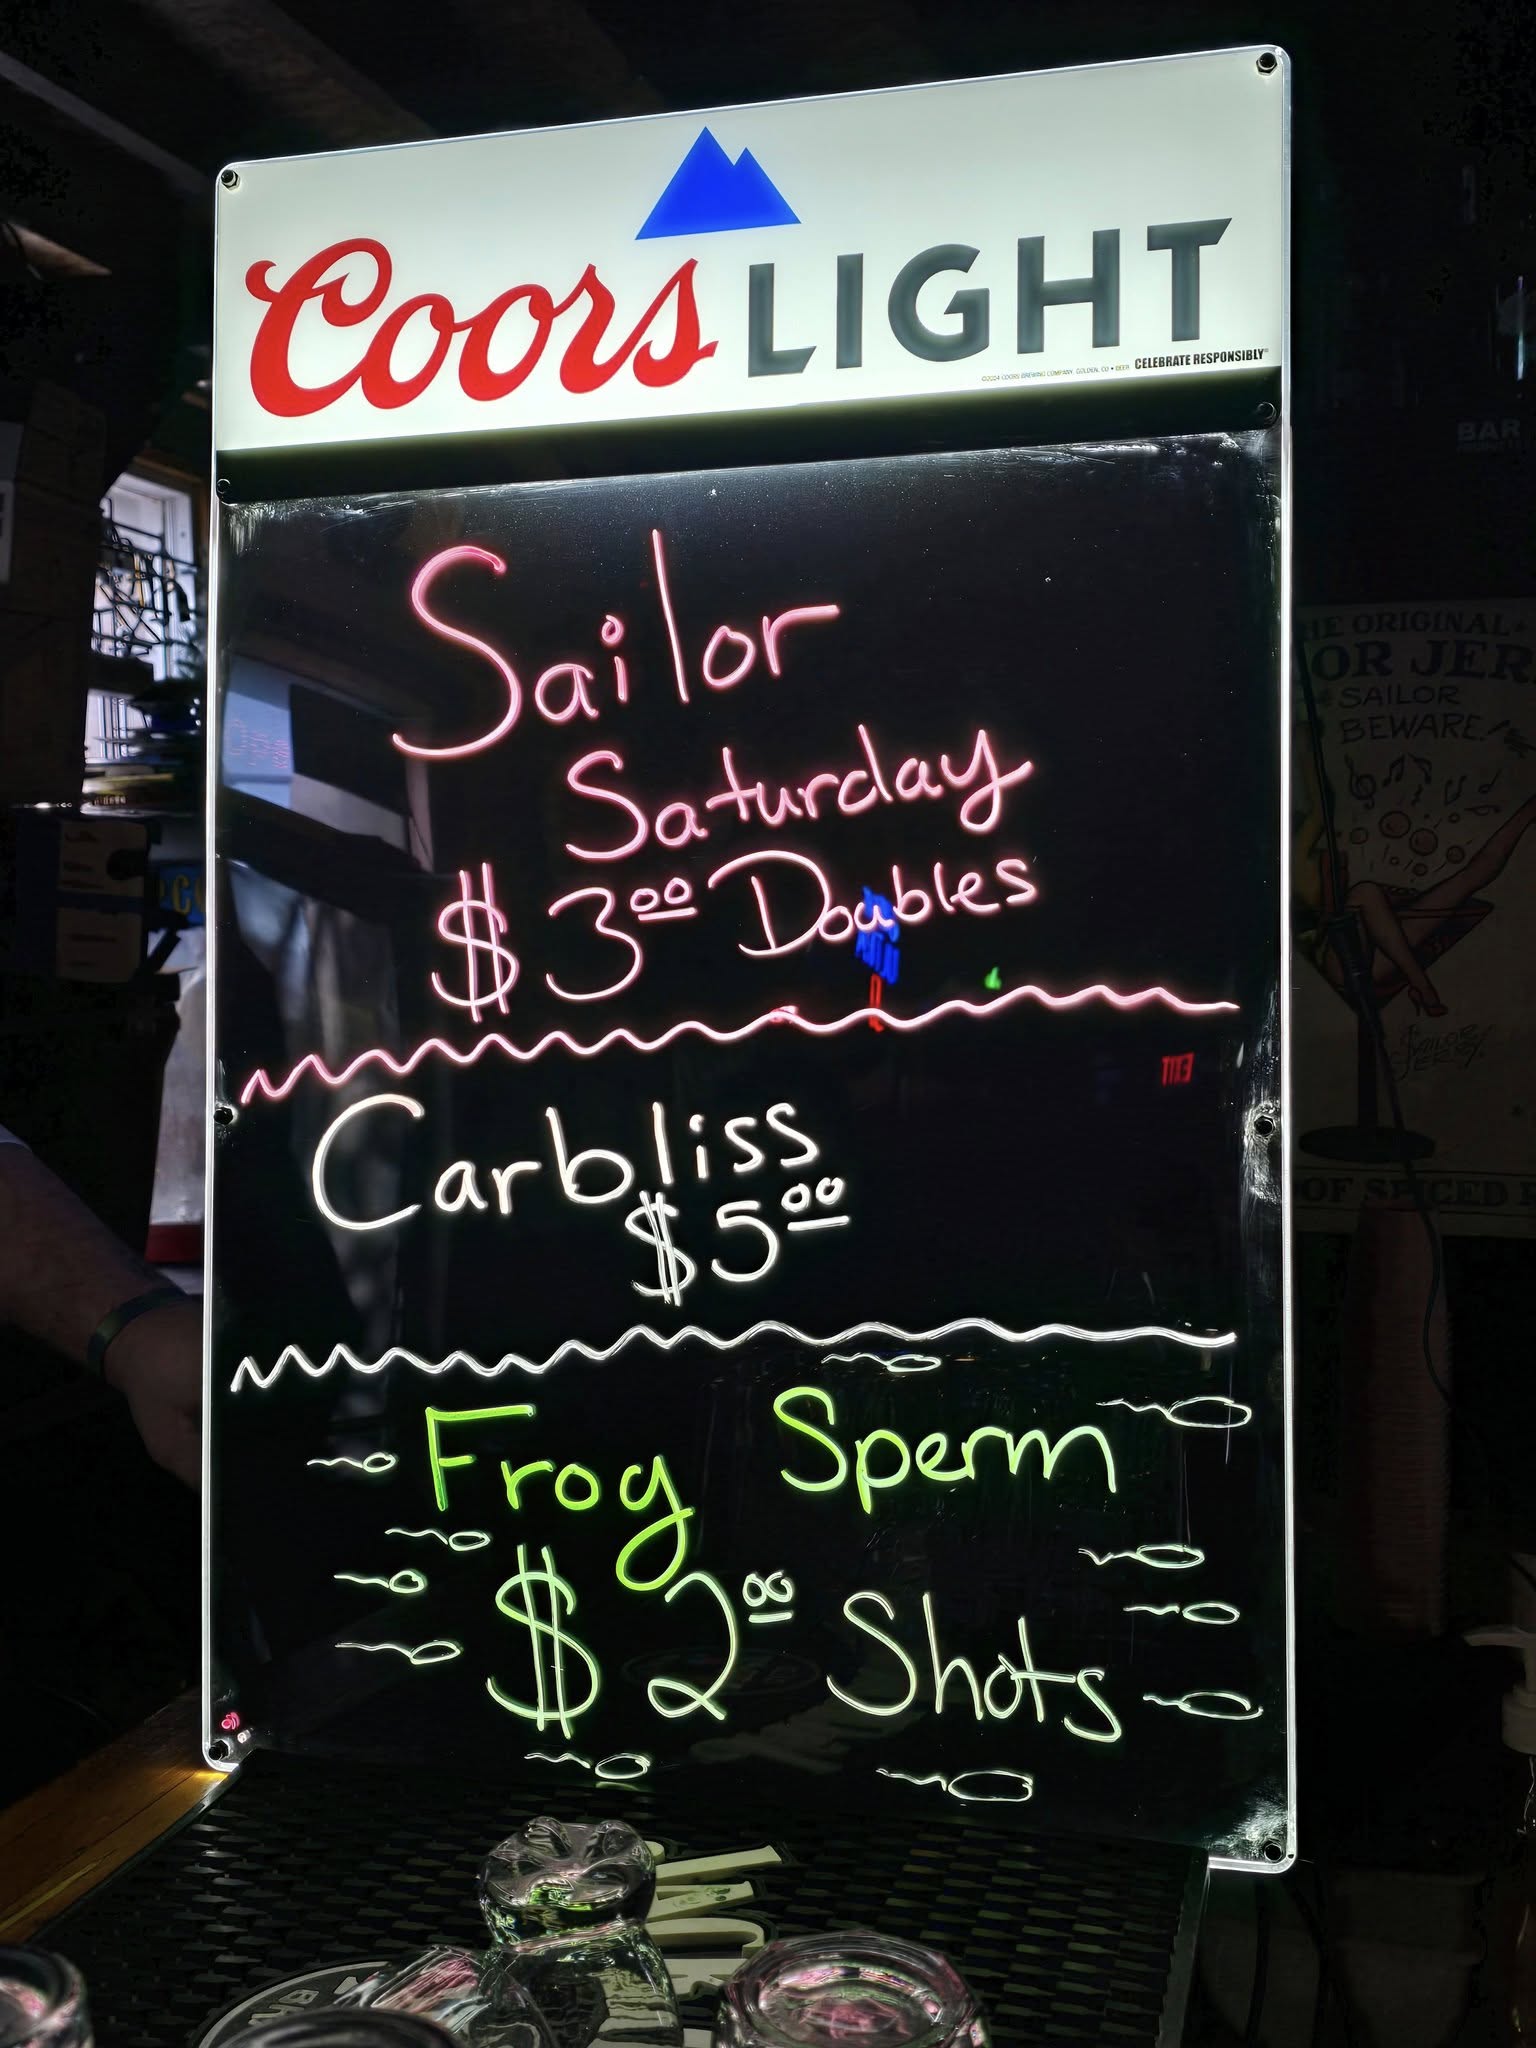 Coors LIGHT
©2024 COORS BREWING COMPANY, GOLDEN, CO • BEER CELEBRATE RESPONSIBLY®
Sailor
Saturday
$3.00 Doubles
Carbliss
$5.00
Frog Sperm
$2.00 Shots
EXIT
BAR
HE ORIGINAL
OR JER
SAILOR
BEWARE!
SAILOR
JERRY
OF SPICED